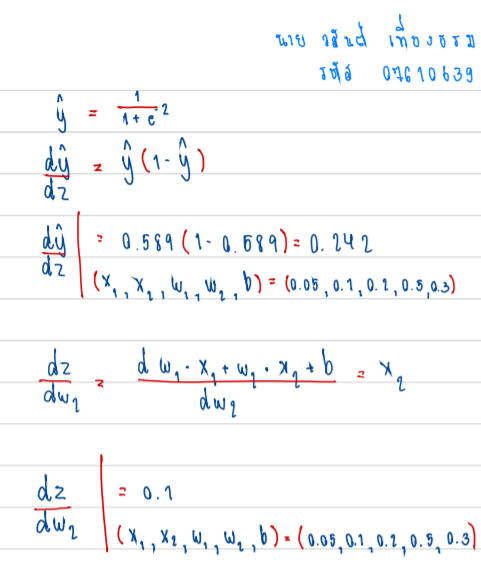 นาย วสันต์ เที่ยงธรรม
รหัส 07610639
ŷ = 1/(1 + e^-z)
dŷ/dz = ŷ(1-ŷ)
dŷ/dz | = 0.589(1-0.589) = 0.242
(x₁, x₂, w₁, w₂, b) = (0.05, 0.1, 0.2, 0.5, 0.3)
dz/dw₂ = d w₁·x₁ + w₂·x₂ + b/dw₂ = x₂
dz/dw₂ | = 0.1
(x₁, x₂, w₁, w₂, b) = (0.05, 0.1, 0.2, 0.5, 0.3)